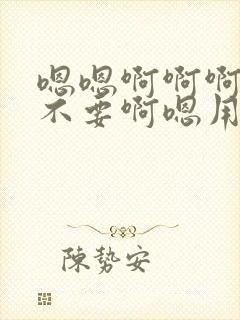 嗯嗯啊啊啊
不要啊嗯用
陳勢安